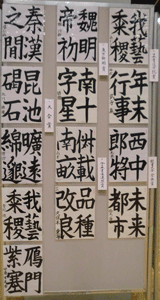 我藝
黍稷
年末
行事
未来
都市
魏明
帝初
南十
字星
俶載
南畝
品種
改良
秦漢
之間
昆池
碣石
曠遠
綿邈
我藝
黍稷
雁門
紫塞